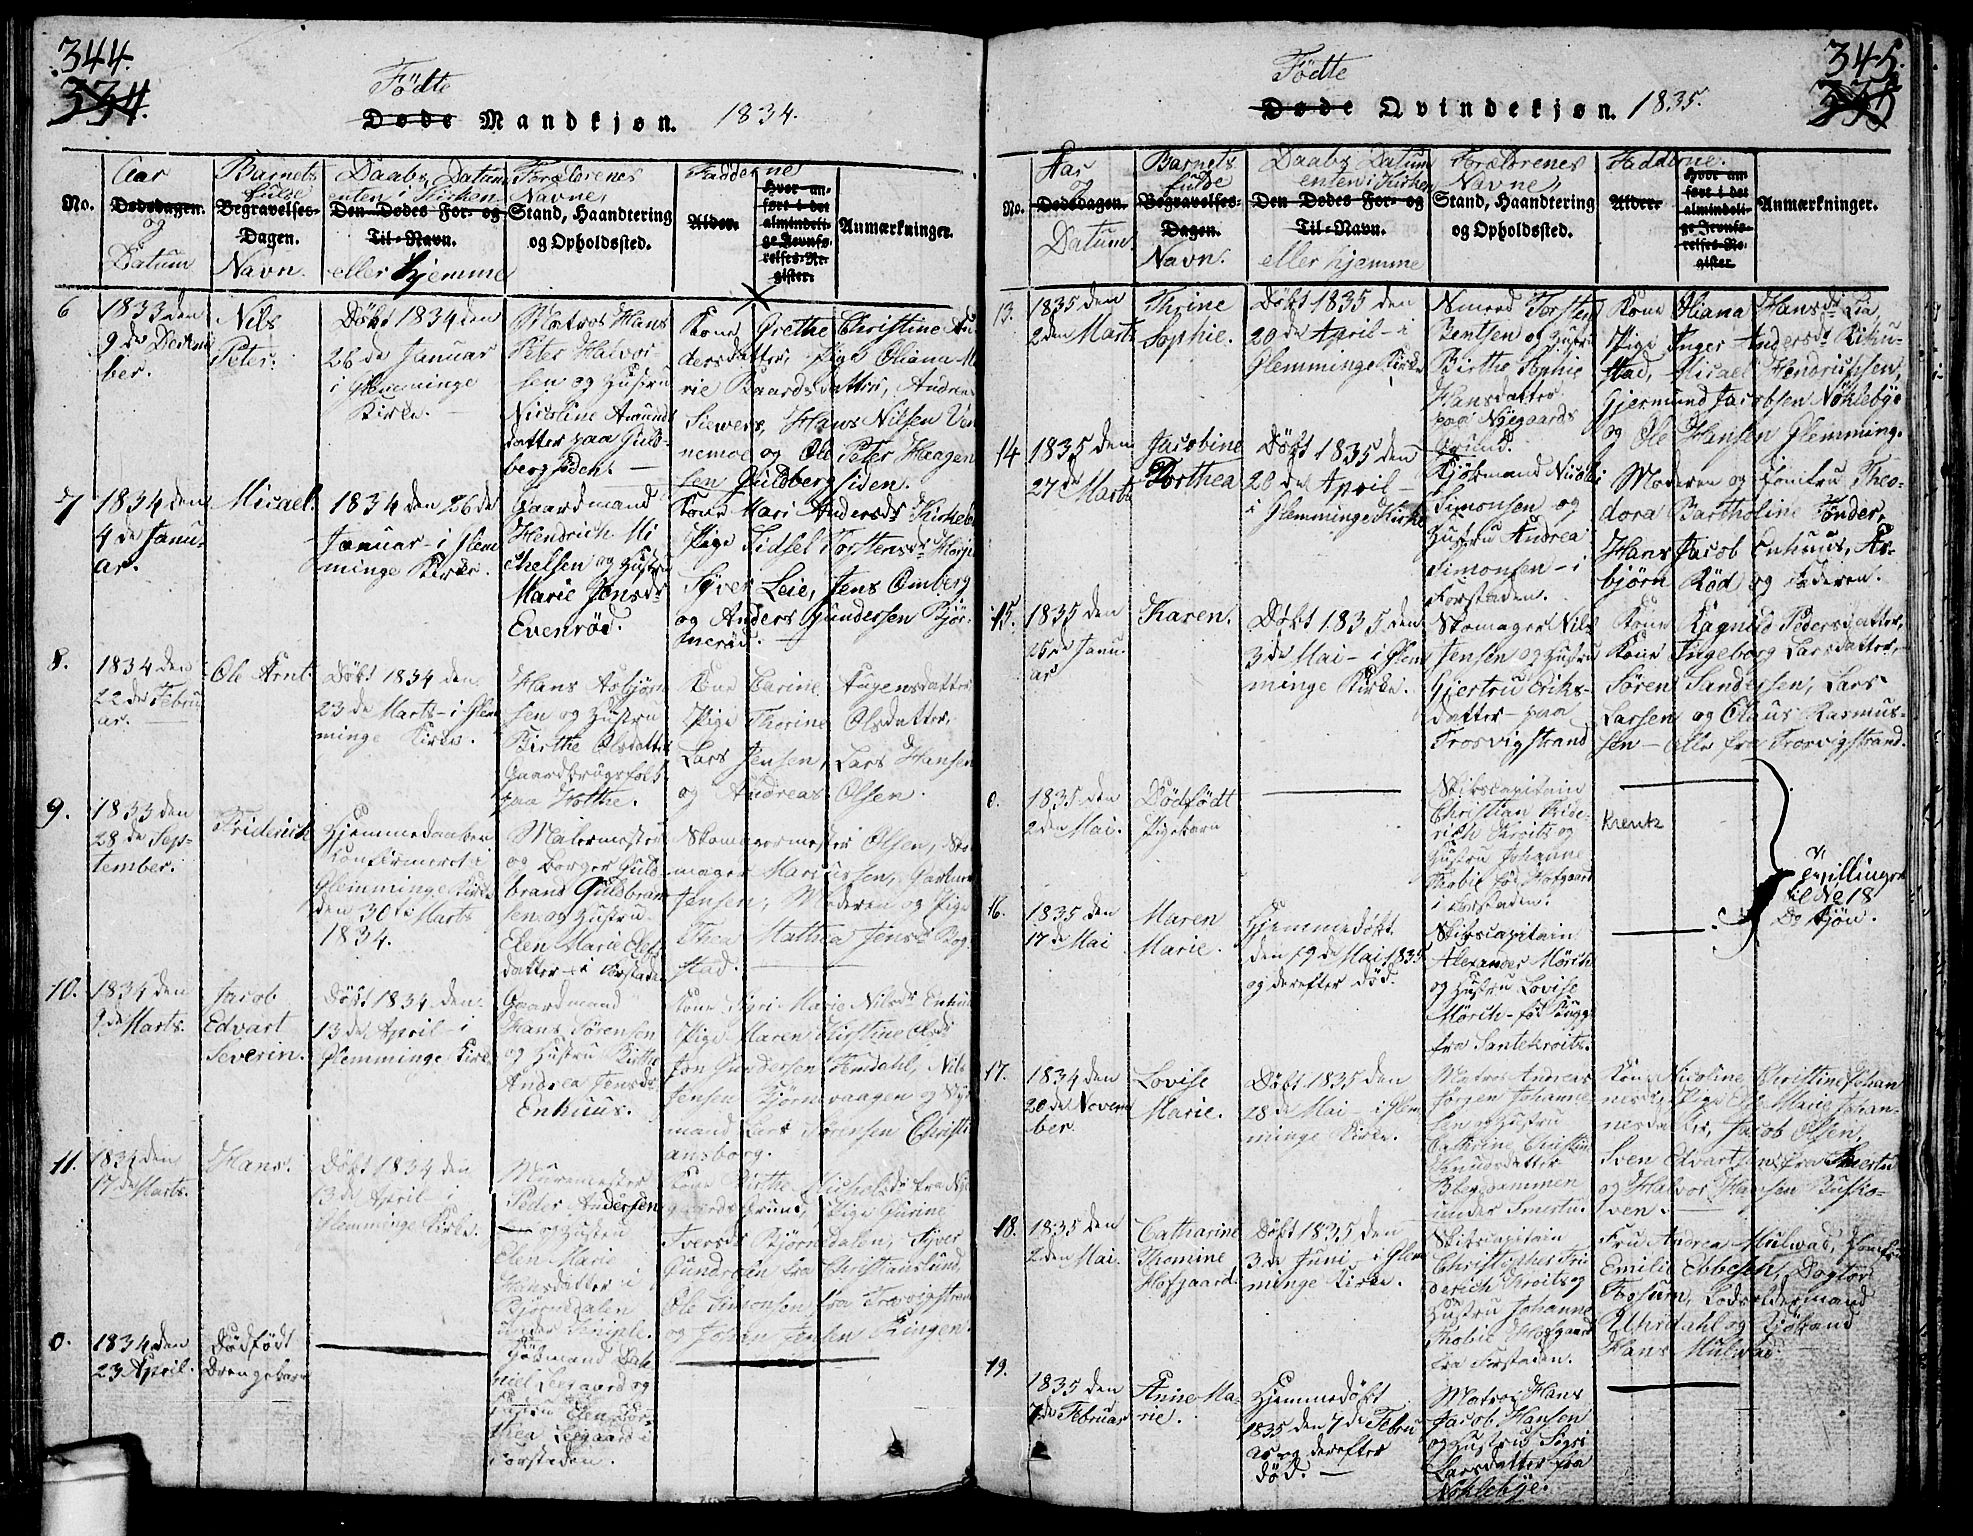 344.
334.
Födte
Døde Mandkjøn. 1834.
No.
Aar
Dødsdagen.
og
Datum
Barnets
fulde
Begravelses-
Dagen.
Navn.
Daabs Datum
enten i Kirken
Den Dødes For- og
Til-Navn.
eller hjemme
Forældrenes
Navne,
Stand, Haandtering
og Opholdssted.
Fadderne
Alder.
Hvor an-
ført i det
almindeli-
ge Jevnfø-
relses-Re-
gister.
Anmærkninger.
6
1833 den
9de Decem
ber.
Nils
Peter.
Døbt 1834 den
26de Januar
i Glemminge
Kirke.
Matros Hans
Peter Halvor-
sen og Hustru
Nicoline Amunds
datter paa Guld-
bergsiden.
Kone Grethe Christine An
dersdatter, Pige Oliana Ma
rie Baardsdatter, Andreas
Siewers, Hans Nilsen Ven
nemoe og Ole Peter Haagen
sen Guldbergsiden.
7
1834 den
4de Janu-
ar.
Micael.
1834 den 26de
Januar i Glem
minge Kirke.
Gaardmand
Hendrich Mi
chelsen og Hustru
Marie Jensdr
Evenrød.
Kone Mari Andersdr Kirkeb
Pige Sidsel Torstensdr
Syver Leie, Jens Omberg
og Anders Gundersen Bjør-
nerød.
8.
1834 den
22de Febru
ar.
Ole Arnt.
Døbt 1834 den
23de Marts i Glem
minge Kirke.
Hans Asbjørn
sen og Hustru
Birthe Olsdatter
Gaardbrugsfolk
paa Holthe.
Kone Carine Augensdatter
Pige Thorine Olsdatter,
Lars Jensen, Lars Hansen
og Andreas Olsen.
9.
1833 den
28de Sep-
tember.
Friderich
Hjemmedaaben
Konfirmeret i
Glemminge Kirke
den 30te Marts
1834.
Malermester
og Borger Guld
brand Guldbrand
sen og Hustru
Elen Marie Ols
datter i Forstaden
Skomagermester Olsen, Sko
mager Marcussen, Gartner
Jensen, Moderen og Pige
Thea Mathea Jensdr Bog
stad.
10.
1834 den
9de Marts.
Jacob
Edvart
Severin.
Døbt 1834 den
13de April i
Glemminge Kirke
Gaardmand
Hans Sørensen
og Hustru Birthe
Andrea Jensdr
Enhuus.
Kone Sigri Marie Nilsdr Enhuus
Pige Maren Kirstine Olsdr
Jon Gundersen Kindahl, Nils
Jensen Bjørnevaagen og Styr
mand Lars Sørensen Christi
ansborg.
11.
1834 den
17de Marts.
Hans.
Døbt 1834 den
13de April i
Glemminge Kirke.
Muremester
Peder Andersen
og Hustru
Elen Marie
Hansdatter i
Bjørndalen
under
Kone Birthe Nicholsdr fra Nye
gaardsgrund, Pige Gurine
Iversdr Bjørndalen, Syver
Gundersen fra Christianslund,
Ole Simonsen fra Trosvigstrand
og Johan Jensen Ringen.
0.
1834 den
23 April.
Dødfødt
Drengebarn
Kjøbmand Da
niel Leegaard og
Hustru Elen Dor-
thea Leegaard i
Forstaden.
345.
335
Födte
Døde Qvindekjøn. 1835.
No.
Aar
og
Dødsdagen.
Datum.
Barnets
fulde
Begravelses-
Dagen.
Navn.
Daabs Datum
enten i Kirken
Den Dødes For- og
Til-Navn.
eller hjemme
Forældrenes
Navne,
Stand, Haandtering
og Opholdssted.
Fadderne.
Alder.
Hvor an-
ført i det
almindeli-
ge Jevnfø-
relses-Re-
gister.
Anmærkninger.
13.
1835 den
2den Marts
Thrine
Sophie.
Døbt 1835 den
20de April i
Glemminge Kirke
Nmand Torsten
Bentsen og Hustru
Birthe Sophie
Hansdatter
paa Nygaards
Grund.
Kone Oliana Hansdr Lia,
Pige Inger Andersdr Rihu-
stad, Micael Hendrichsen,
Gjermund Jacobsen Nøklebye
og Ole Hansen Glemming.
14
1835 den
27de Marts
Jacobine
Dorthea
Døbt 1835 den
20de April
i Glemminge Kirke
Kjøbmand Nicolai
Simonsen og
Hustru Andrea
Simonsen i
Forstaden.
Moderen og Jomfru Theo-
dora Bartholine Tønder,
Hans Jacob Enhuus, As-
bjørn Rød og Faderen.
15.
1835 den
25de Janu
ar
Karen.
Døbt 1835 den
3de Mai i Glem
minge Kirke.
Skomager Nils
Jensen og Hustru
Gjertru Eriks-
datter paa
Trosvigstrand
Kone Ragnild Pedersdatter,
Kone Ingeborg Larsdatter,
Søren Sandersen, Lars
Larsen og Claus Rasmus-
sen alle fra Trosvigstrand.
0.
1835 den
2den Mai.
Dødfødt
Pigebarn
Skibscapitain
Christian Fride-
rich Kroits og
Hustru Johanne
Thobie fød Hofgaard
i Forstaden.
Kreutz
Tvillinger
til No 18
D. Kjøn.
16.
1835 den
17de Mai
Maren
Marie.
Hjemmedøbt
den 19de Mai 1835
og derefter død.
Skibscapitain
Alexander Mörch
og Hustru Lovise
Mörch fød Bugge
fra Santekroits.
17.
1834 den
20de Novem
ber.
Lovise
Marie.
Døbt 1835 den
28de Mai i Glem
minge Kirke.
Matros Andreas
Jørgen Johanne
sen og Hustru
Cathrine Christine
Blegdammen
under Smertu.
Kone Nicoline Christine Johan
nesdr, Pige Else Marie Johan-
nesdatter, Jacob Olsen,
Sven Edvartsen fra Smertu
og Halvor Hansen Busko-
ven.
18.
1835 den
2den Mai.
Catharine
Thomine
Hofgaard.
Døbt 1835 den
3de Juni i Glem
minge Kirke.
Skibscapitain
Christopher Fri
derich Kroits og
Hustru Johanne
Thobie Hofgaard
fra Forstaden.
Fru Andrea Mülwad, Jomfru
Emilie Ebbesen, Doctor
Fogsum, Lodsoldermand
Uhrdahl og Kjøbmand
Hans Mülwad.
19.
1835 den
7de Februar
Anne Ma-
rie.
Hjemmedøbt
1835 den 7de Febru
ar og derefter
død.
Matros Hans
Jacob Hansen
og Hustru Sigri
Larsdatter fra
Nøklebye.